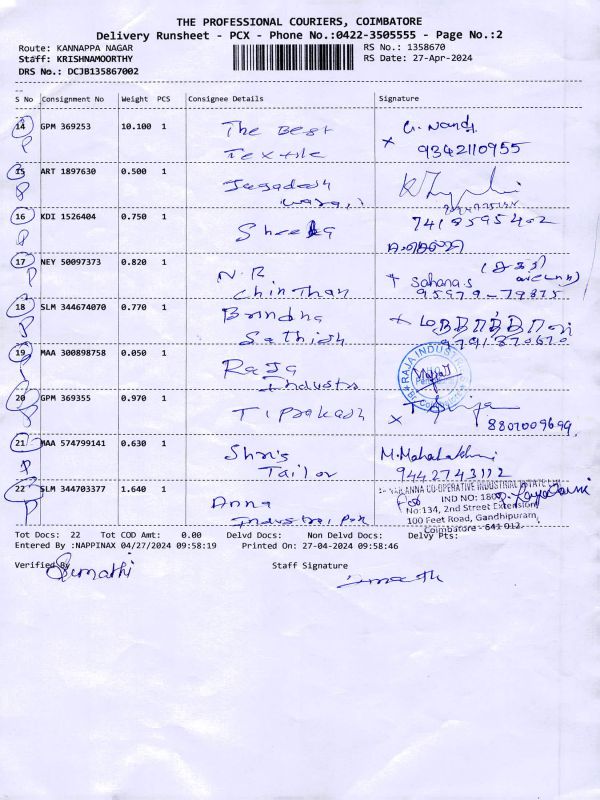 THE PROFESSIONAL COURIERS, COIMBATORE
Delivery Runsheet - PCX - Phone No.:0422-3505555 - Page No.:2
Route: KANNAPPA NAGAR RS No.: 1358670
Staff: KRISHNAMOORTHY RS Date: 27-Apr-2024
DRS No.: DCJB135867002
S No Consignment No Weight PCS Consignee Details Signature
14 GPM 369253 10.100 1 The Best G. Nandi
Textile x 9342110955
15 ART 1897630 0.500 1 Jagadesh
16 KDI 1526404 0.750 1 Sheela 7418595402
17 NEY 50097373 0.820 1 N.R Sahana.s
Chinthan 95979-79875
18 SLM 344674070 0.770 1 Brindha
Sathish 9791870670
19 MAA 300898758 0.050 1 Raja RAJA INDUSTR
Industrs
20 GPM 369355 0.970 1 T. Prakash
x 8807009699
21 MAA 574799141 0.630 1 Shri's M.Mahalakhmi
Tailor 9442743112
22 SLM 344703377 1.640 1 Anna ANNA CO-OPERATIVE INDUSTRIAL ESTATE LTD
IND NO: 1800
No:134, 2nd Street Extension,
Industrai 100 Feet Road, Gandhipuram,
Coimbatore - 641 012.
Tot Docs: 22 Tot COD Amt: 0.00 Delvd Docs: Non Delvd Docs: Delvy Pts:
Entered By :NAPPINAX 04/27/2024 09:58:19 Printed On: 27-04-2024 09:58:46
Verified By Staff Signature
Sumathi